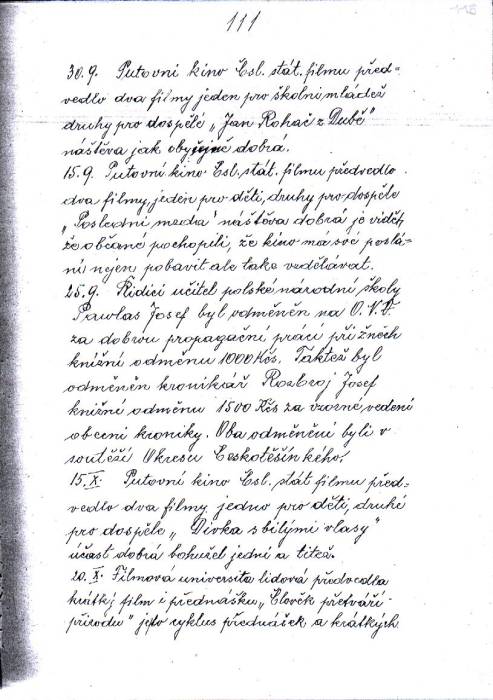 111
30.9. Putovni kino Čsl. stát. filmu před-
vedlo dva filmy jeden pro školní mládež
druhy pro dospělé „Jan Rohač z Dubé"
náštěva jak obyčejně dobrá.
15.9. Putovní kino Čsl. stát. filmu předvedlo
dva filmy, jeden pro děti, druhy pro dospěle
„Poslední meda" náštěva dobrá je viděti,
že občané pochopili, že kino má své poslá-
ní nejen pobavit ale take vzdělávat.
25.9. Řídící učitel polské národní školy
Pawlas Josef byl odměněn na O.N.V.
za dobrou propagační práci při žněch
knižní odměnu 1000 Kčs. Taktež byl
odměněn kronikář Rozbroj Josef
knižné odměnu 1500 Kčs za vzorné vedení
obecní kroniky. Oba odměnění byli v
soutěží Okresu Českotěšínkého.
15.X. Putovní kino Čsl. stát filmu před-
vedlo dva filmy jedno pro děti, druhé
pro dospěle „Divka s bilými vlasy"
účast dobrá bohužel jedni a titéž.
20.X. Filmová universita lidová předvedla
krátký film i přednášku „Člověk přetváří
přírodu" je to cyklus přednášek a krátkých